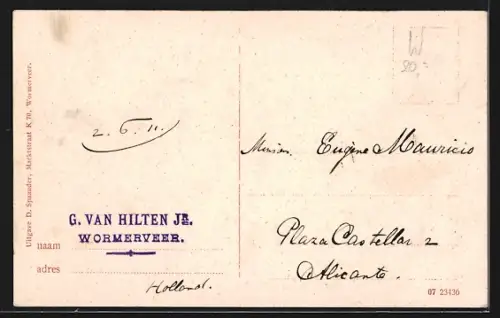 Uitgave D. Spaander, Marktstraat K 70, Wormerveer.
2.6.11.
G. VAN HILTEN JR.
WORMERVEER.
naam
adres
Holland.
Eugène Mauricio
Plaza Castellar 2
Alicante.
07 23436